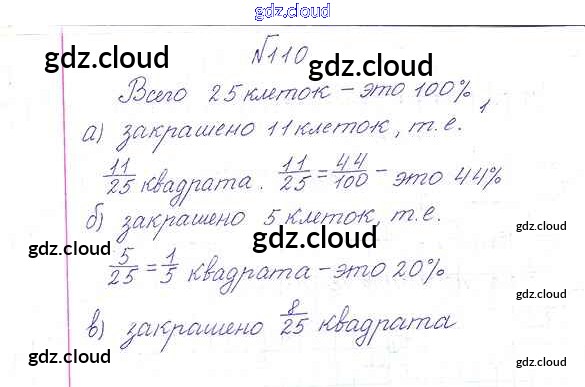 gdz.cloud
gdz.cloud gdz.cloud
№110
gdz.cloud
Всего 25 клеток – это 100%,
а) закрашено 11 клеток, т.е.
11/25 квадрата. 11/25 = 44/100 – это 44%
б) закрашено 5 клеток, т.е.
gdz.cloud
gdz.cloud gdz.cloud
5/25 = 1/5 квадрата – это 20%
gdz.cloud
в) закрашено 8/25 квадрата
gdz.cloud gdz.cloud gdz.cloud